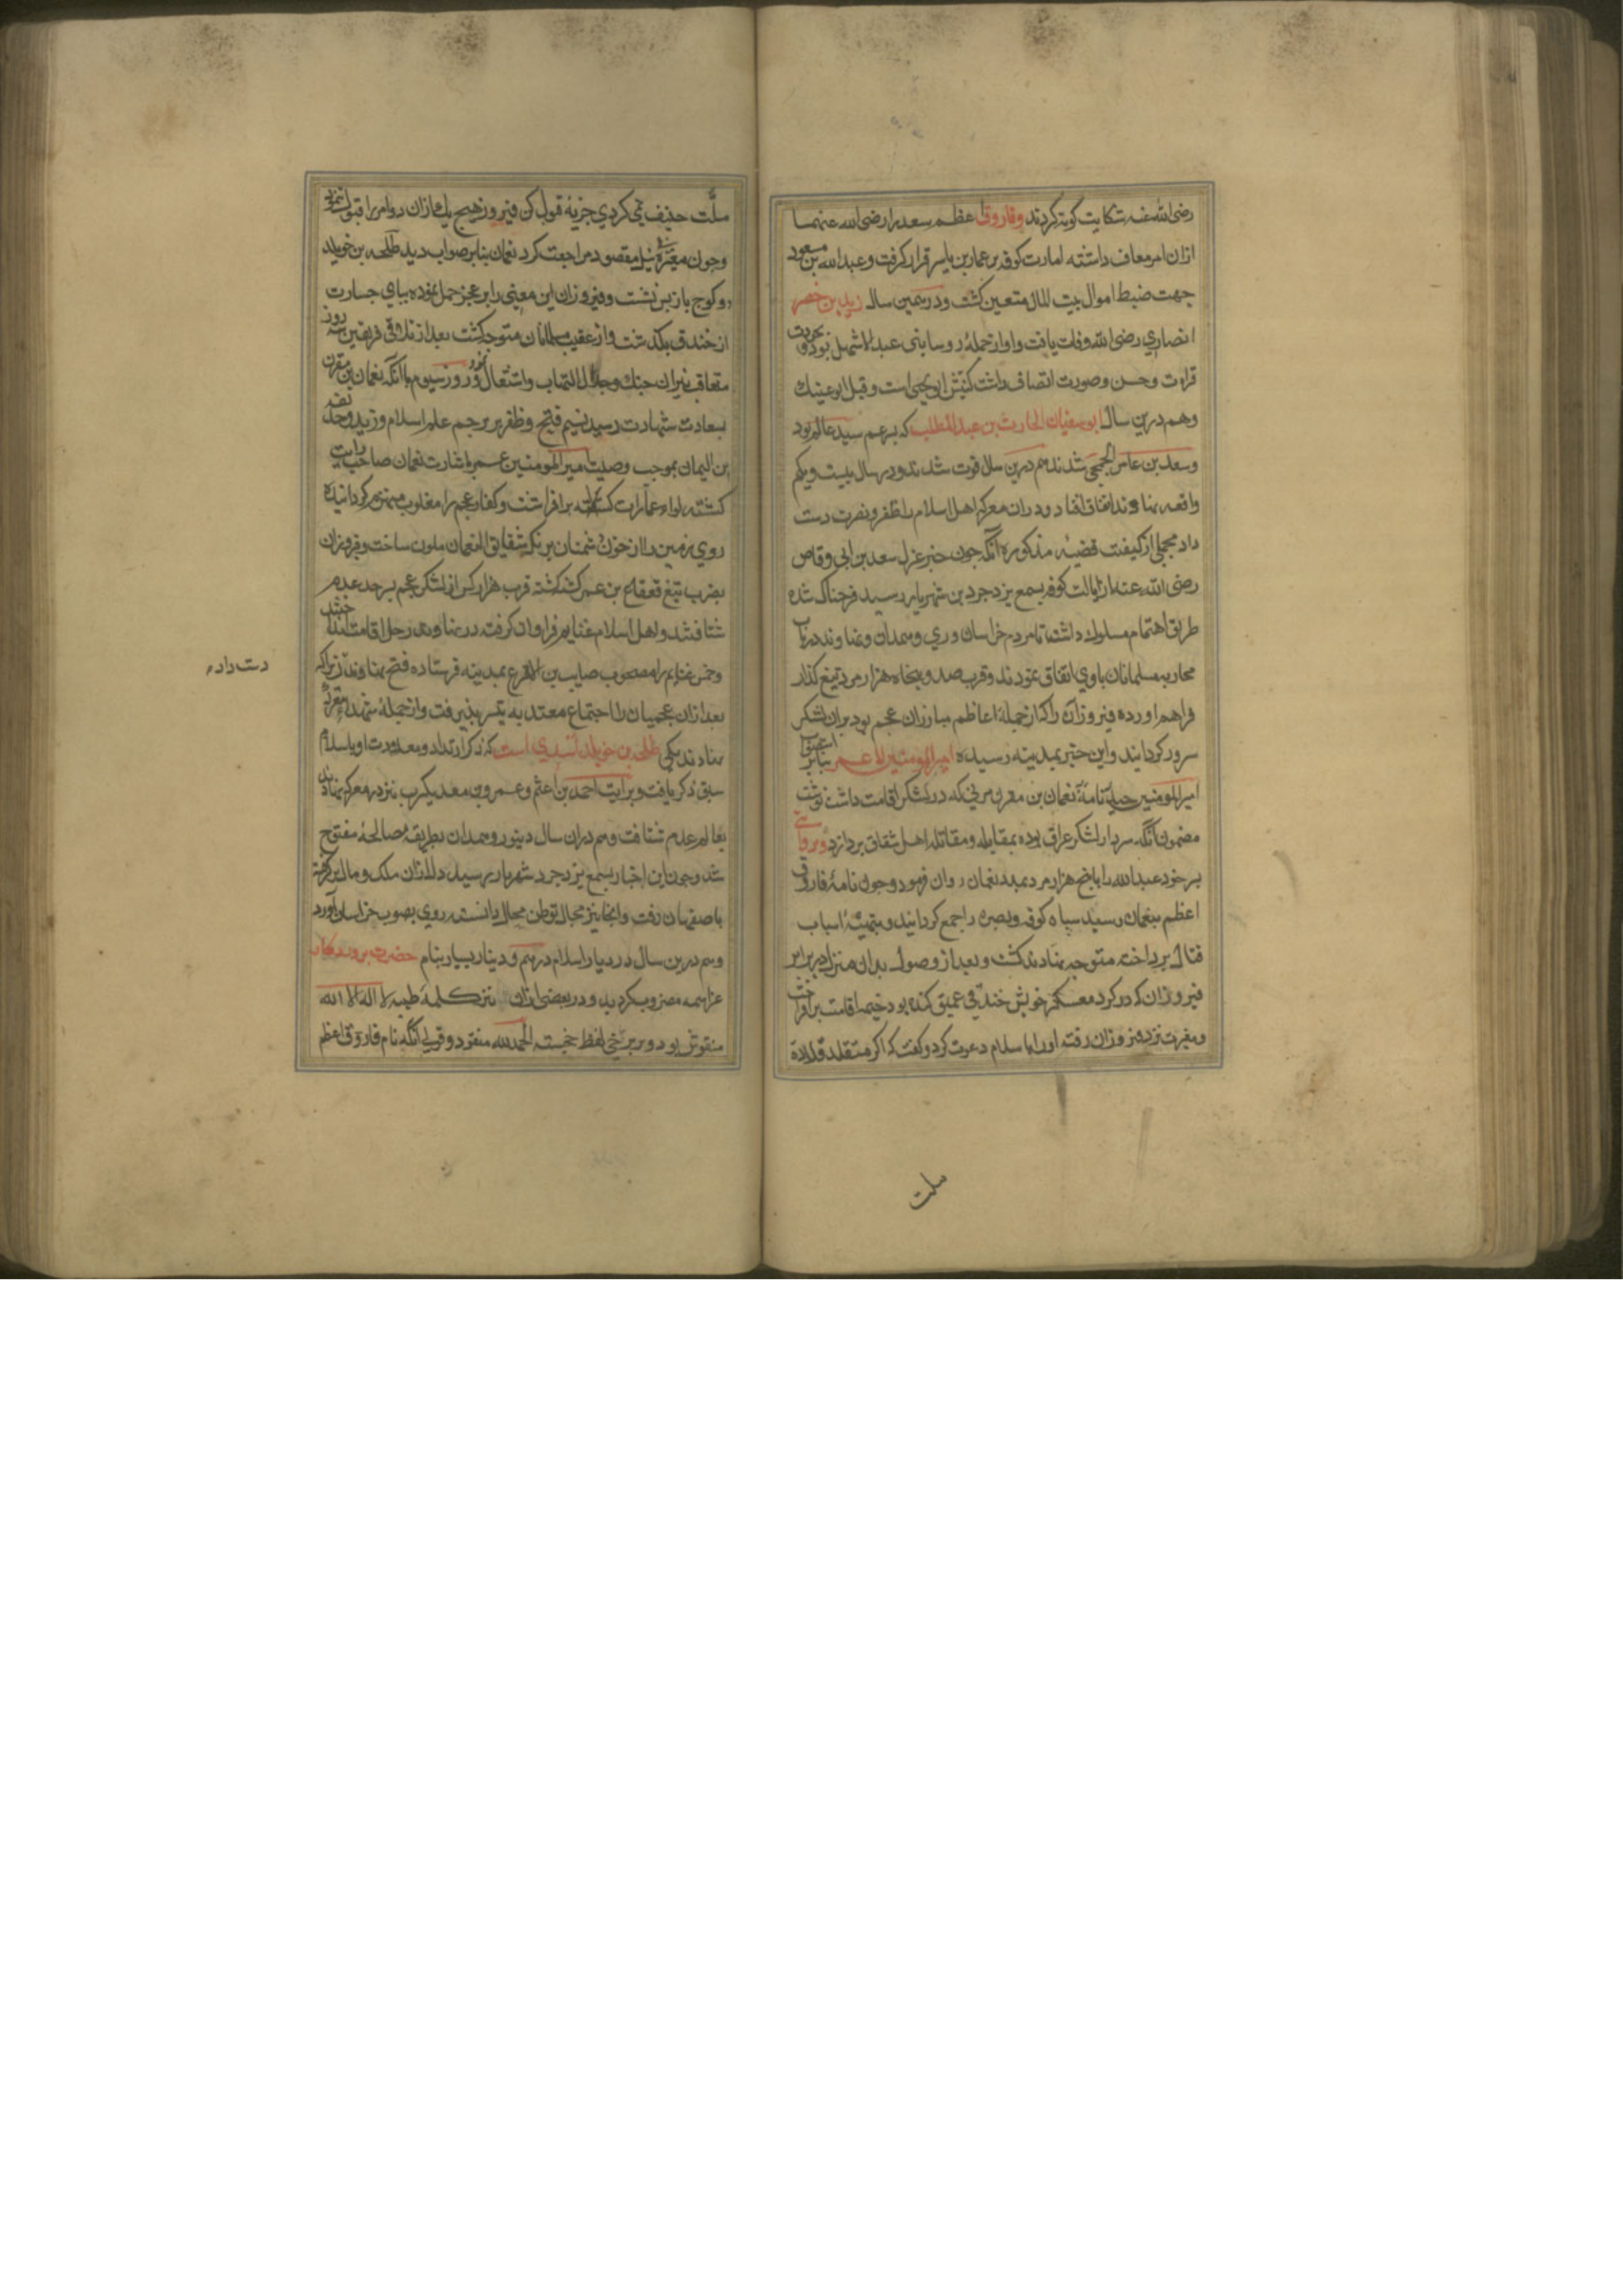 رضی الله عنه شکایت گونه کردند وفاروق اعظم سعد را رضی الله عنهما
ازان امر معاف داشته امارت کوفه بر عمار بن یاسر قرار گرفت وعبد الله بن مسعود
جهت ضبط اموال بیت المال متعین کشت ودر همین سال
انصاری رضی الله وفات یافت واو از جملهٔ روسا بنی عبد الاشهل بود
قراءت وحسن وصورت اتصاف داشت کنیتش ابو یحیی است وقیل ابو عتیک
وهم درین سال ابو سفیان الحارث بن عبد المطلب که پسر عم سید عالم بود
وسعد بن عامر الجمحی شدند هم درین سال فوت شدند ودر سال بیست ویکم
واقعه نهاوند اتفاق افتاد ودران معرکه اهل اسلام را ظفر ونصرت دست
داد مجملی از کیفیت قضیهٔ مذکوره آنکه چون خبر عزل سعد بن ابی وقاص
رضی الله عنه از ایالت کوفه بسمع یزدجرد بن شهریار رسید فرحناک شده
طریق اهتمام مسلوک داشت تا مردم خراسان وری وهمدان ونهاوند در باب
محاربه مسلمانان باوی اتفاق نمودند وقرب صد وپنجاه هزار مرد تیغ گذار
فراهم آورده فیروزان را که از جملهٔ اعاظم مبارزان عجم بود بران لشکر
سرور کردانید واین خبر بمدینه رسیده امیر المومنین عمر بنابر
امیر المومنین نامهٔ نعمان بن مقرن مزنی که در لشکر اقامت داشت نوشت
مضمون آنکه سردار لشکر عراق بوده بمقابله ومقاتله اهل شقاق پردازد وبروایتی
پسر خود عبد الله را با پنج هزار مرد بمدد نعمان روان فرمود وچون نامهٔ فاروق
اعظم بنعمان رسید سپاه کوفه وبصره را جمع کردانید وبتهیهٔ اسباب
قتال پرداخته متوجه نهاوند کشت وبعد از وصول بدان منزل در برابر
فیروزان که در کرد معسکر خویش خندقی عمیق کنده بود خیمه اقامت برافراخت
ومغیره نزد فیروزان رفته اورا باسلام دعوت کرد وگفت که اگر متقلد قلادهٔ
ملت
ملت حنیف نمی کردی جزیه قبول کن فیروز هیچ یک ازان دو امر را قبول ننمود
وچون مغیره بی نیل مقصود مراجعت کرد نعمان بنابر صواب دید طلحه بن خویلد
کوچ باز پس نشست وفیروزان این معنی را بر عجز حمل نموده بپای جسارت
از خندق بگذشت واز عقب مسلمانان متوجه کشت بعد از تلاقی فریقین سه روز
متعاقب نیران جنک وجدال التهاب واشتعال نمود ودر روز سیوم با آنکه نعمان بن مقرن
بسعادت شهادت رسید نسیم فتح وظفر بر پرچم علم اسلام وزید وحذیفه
بن الیمان بموجب وصیت امیر المومنین عمر باشارت نعمان صاحب رایت
کشته لواء برافراشت وکفار عجم را مغلوب منهزم کردانیده
روی زمین را از خون دشمنان برنک شقایق النعمان ملون ساخت وفیروزان
بضرب تیغ قعقاع بن عمر کشته کشته قرب هزار کس از لشکر عجم بسرحد عدم
شتافتند واهل اسلام غنایم فراوان گرفته در نهاوند رحل اقامت انداختند
وخمس غنایم را مصحوب صایب بن الاقرع بمدینه فرستاده فتح نهاوند زیرا که
بعد ازان عجمیان را اجتماع معتد به تیسر نپذیرفت واز جملهٔ شهداء معرکه
نهاوند یکی طلحه بن خویلد اسدی است که ذکر ارتداد ومعاودت او باسلام
سبق ذکر یافت وبروایت احمد بن اعثم وعمرو بن معدیکرب نیز در معرکه نهاوند
بعالم عدم شتافت وهم دران سال دینور وهمدان بطریقه مصالحهٔ مفتوح
شد وچون این اخبار بسمع یزدجرد شهریار رسید دل ازان ملک ومال برگرفته
باصفهان رفت وانجا نیز مجال توطن محال دانسته روی بصوب خراسان آورد
وهم درین سال در دیار اسلام درهم ودینار بسیار بنام حضرت پروردکار
عز اسمه مضروب کردید ودر بعضی ازان نیز کلمهٔ طیبه لا اله الا الله
منقوش بود وبر برخی لفظ خجسته الحمد لله منقود وقولی آنکه نام فاروق اعظم
دست داد